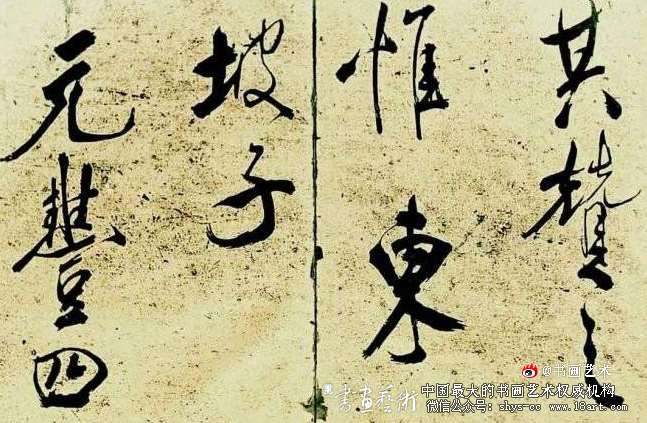 其贊之
惟東
坡子
元豐四
@书画艺术
書画藝術
中国最大的书画艺术权威机构
微信公众号: shys-cc www.18art.com